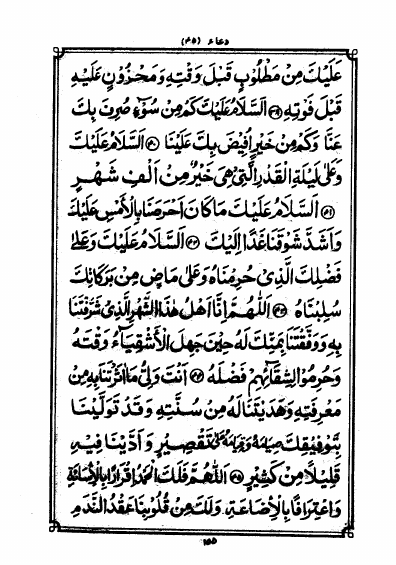 دعاء (٤٥)
عَلَيْكَ مِنْ مَطْلُوبٍ قَبْلَ وَقْتِهِ وَمَحْزُوْنٍ عَلَيْهِ
قَبْلَ فَوْتِهِ ۝ اَلسَّلَامُ عَلَيْكَ كَمْ مِنْ سُوْٓءٍ صُرِفَ بِكَ
عَنَّا وَكَمْ مِنْ خَيْرٍ اُفِيْضَ بِكَ عَلَيْنَا ۝ اَلسَّلَامُ عَلَيْكَ
وَعَلٰى لَيْلَةِ الْقَدْرِ الَّتِىْ هِىَ خَيْرٌ مِنْ اَلْفِ شَهْرٍ
۝ اَلسَّلَامُ عَلَيْكَ مَا كَانَ اَحْرَصَنَا بِالْاَمْسِ عَلَيْكَ
وَاَشَدَّ شَوْقَنَا غَدًا اِلَيْكَ ۝ اَلسَّلَامُ عَلَيْكَ وَعَلٰى
فَضْلِكَ الَّذِىْ حُرِمْنَاهُ وَعَلٰى مَاضٍ مِنْ بَرَكَاتِكَ
سُلِبْنَاهُ ۝ اَللّٰهُمَّ اِنَّا اَهْلُ هٰذَا الشَّهْرِ الَّذِىْ شَرَّفْتَنَا
بِهِ وَوَفَّقْتَنَا بِمَنِّكَ لَهُ حِيْنَ جَهِلَ الْاَشْقِيَاءُ وَقْتَهُ
وَحُرِمُوْا لِشَقَائِهِمْ فَضْلَهُ ۝ اَنْتَ وَلِىُّ مَا اٰثَرْتَنَا بِهِ مِنْ
مَعْرِفَتِهِ وَهَدَيْتَنَا لَهُ مِنْ سُنَّتِهِ وَقَدْ تَوَلَّيْنَا
بِتَوْفِيْقِكَ صِيَامَهُ وَقِيَامَهُ عَلٰى تَقْصِيْرٍ وَاَدَّيْنَا فِيْهِ
قَلِيْلًا مِنْ كَثِيْرٍ ۝ اَللّٰهُمَّ فَلَكَ الْحَمْدُ اِقْرَارًا بِالْاِسَاءَةِ
وَاعْتِرَافًا بِالْاِضَاعَةِ وَلَكَ مِنْ قُلُوْبِنَا عَقْدُ النَّدَمِ